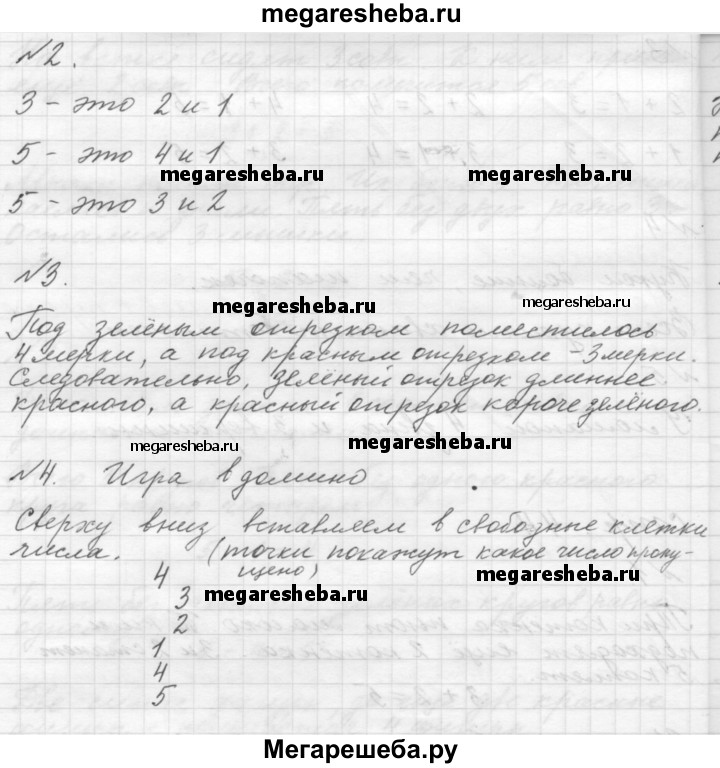 megaresheba.ru
№2.
3 - это 2 и 1
5 - это 4 и 1
megaresheba.ru megaresheba.ru
5 - это 3 и 2
№3.
megaresheba.ru megaresheba.ru
Под зелёным отрезком поместилось
4 мерки, а под красным отрезком - 3 мерки.
Следовательно, зелёный отрезок длиннее
красного, а красный отрезок короче зелёного.
megaresheba.ru megaresheba.ru
№4. Игра в домино
Сверху вниз вставляем в свободные клетки
числа. (точки покажут какое число пропу-
щено)
4 megaresheba.ru
3 megaresheba.ru
2
1
4
5
Мегарешеба.ру